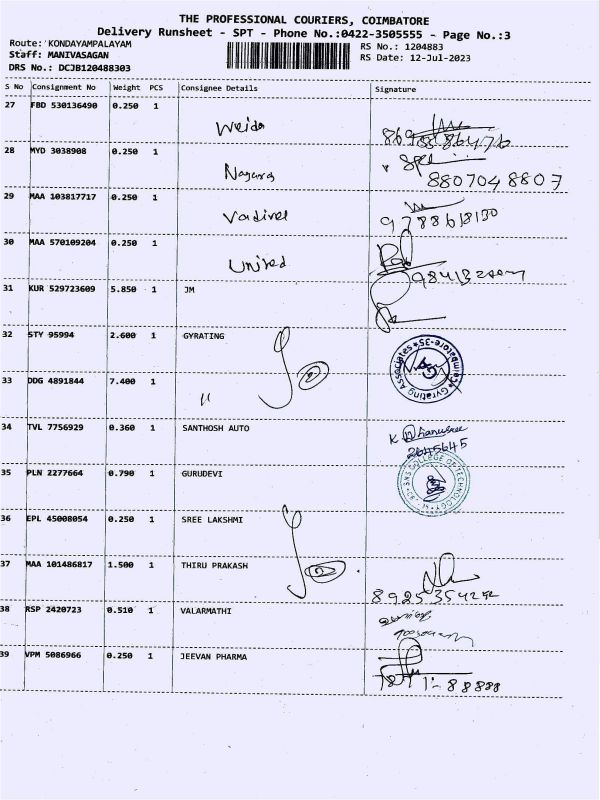 THE PROFESSIONAL COURIERS, COIMBATORE
Delivery Runsheet - SPT - Phone No.:0422-3505555 - Page No.:3
Route: KONDAYAMPALAYAM
RS No.: 1204883
Staff: MANIVASAGAN
RS Date: 12-Jul-2023
DRS No.: DCJB120488303
S No Consignment No Weight PCS Consignee Details Signature
27 FBD 530136490 0.250 1
28 MYD 3038908 0.250 1
8807048807
29 MAA 103817717 0.250 1 Vadivel
9788618130
30 MAA 570109204 0.250 1 United
31 KUR 529723609 5.850 1 JM
32 STY 95994 2.600 1 GYRATING
Gyrating Associates * Coimbatore-35 *
33 DDG 4891844 7.400 1 "
34 TVL 7756929 0.360 1 SANTHOSH AUTO
2645645
35 PLN 2277664 0.790 1 GURUDEVI
SNS COLLEGE OF TECHNOLOGY
36 EPL 45008054 0.250 1 SREE LAKSHMI
37 MAA 101486817 1.500 1 THIRU PRAKASH
38 RSP 2420723 0.510 1 VALARMATHI
39 VPM 5086966 0.250 1 JEEVAN PHARMA